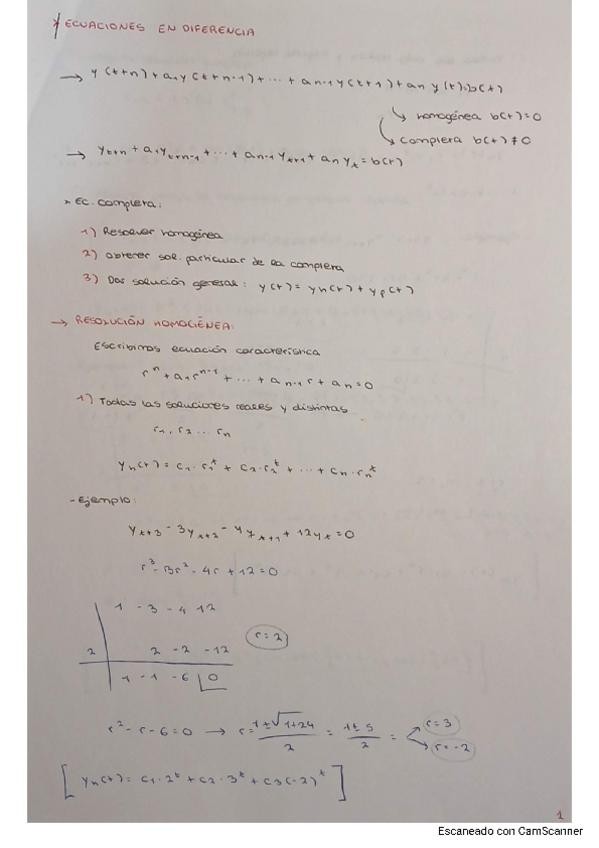 * ECUACIONES EN DIFERENCIA
→ y(t+n) + a₁y(t+n-1) + ... + aₙ₋₁y(t+1) + aₙ y(t) = b(t)
↳ homogénea b(t) = 0
↳ completa b(t) ≠ 0
→ yₜ₊ₙ + a₁yₜ₊ₙ₋₁ + ... + aₙ₋₁ yₜ₊₁ + aₙ yₜ = b(t)
* EC. completa:
1) Resolver homogénea
2) obtener sol. particular de la completa
3) Dar solución general: y(t) = yₕ(t) + yₚ(t)
→ RESOLUCIÓN HOMOGÉNEA:
Escribimos ecuación característica
rⁿ + a₁rⁿ⁻¹ + ... + aₙ₋₁ r + aₙ = 0
1) Todas las soluciones reales y distintas
r₁, r₂ ... rₙ
yₕ(t) = c₁·r₁ᵗ + c₂·r₂ᵗ + ... + cₙ·rₙᵗ
- Ejemplo:
yₜ₊₃ - 3yₜ₊₂ - 4yₜ₊₁ + 12yₜ = 0
r³ - 3r² - 4r + 12 = 0
1 -3 -4 12
2 2 -2 -12 r = 2
1 -1 -6 0
r² - r - 6 = 0 → r = 1±√1+24 / 2 = 1±5 / 2 = r = 3
r = -2
[yₕ(t) = c₁·2ᵗ + c₂·3ᵗ + c₃(-2)ᵗ]
1
Escaneado con CamScanner